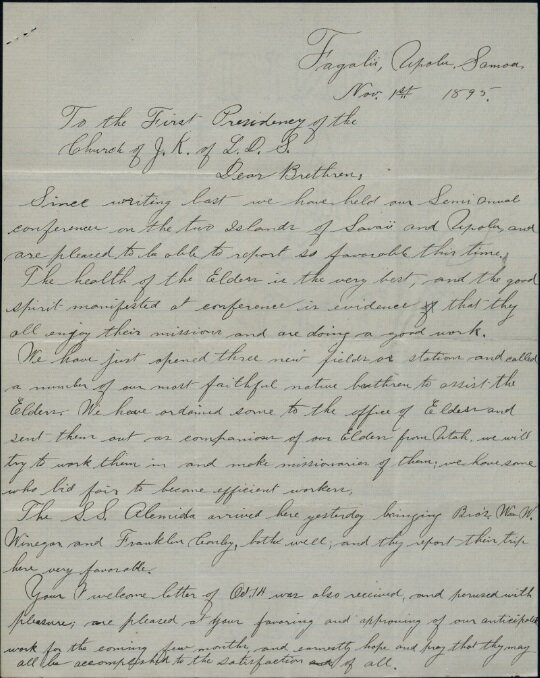 Fagalii, Upolu, Samoa,
Nov. 1st 1895.
To the First Presidency of the
Church of J. K. of L. D. S.
Dear Brethren,
Since writing last we have held our Semi anual
conferences on the two Islands of Savaii and Upolu, and
are pleased to be able to report so favorable this time.
The health of the Elders is the very best, and the good
spirit manifested at conference is evidence that they
all enjoy their missions and are doing a good work.
We have just opened three new fields or station and called
a number of our most faithful native brethren to assist the
Elders. We have ordained some to the office of Elders and
sent them out as companions of our Elders from Utah, we will
try to work them in and make missionaries of them; we have some
who bid fair to become efficient workers,
The S.S. Alemida arrived here yesterday bringing Bro's. Wm W.
Winegar and Franklin, both well, and they report their trip
here very favorable.
Your welcome letter of Oct. 14 was also received, and perused with
pleasure; are pleased at your favoring and approving of our anticipated
work for the coming few months, and earnestly hope and pray that they may
all be accomplished to the satisfaction of all.